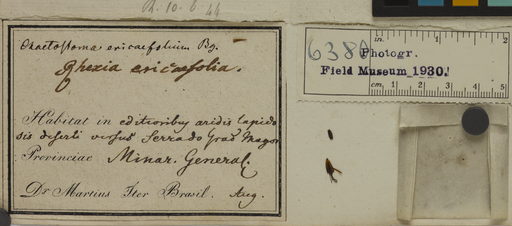 Pl. 10. 6. 44
Chaetostoma ericaefolium Bg.
Rhexia ericaefolia.
Habitat in editioribus aridis lapido
sis deserti versus Serra do Graõ Magor
Provinciae Minar. General.
Dr Martius Iter Brasil. Aug.
6380
Photogr.
Field Museum 1930.
in. 1 2
cm. 1 2 3 4 5